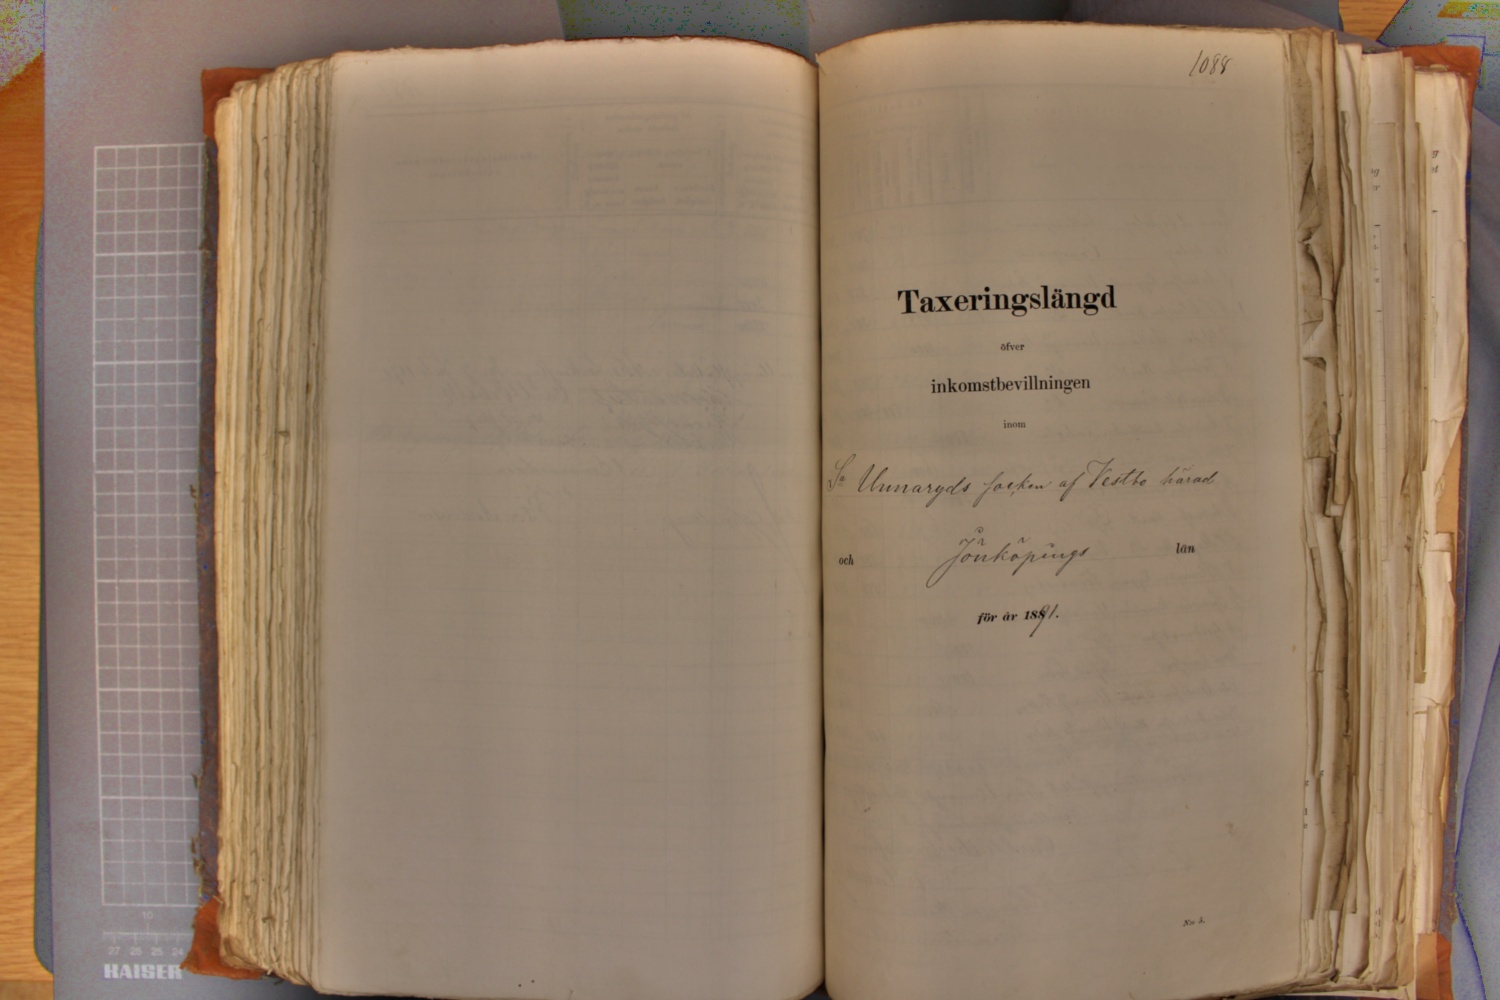 1088
Taxeringslängd
öfver
inkomstbevillningen
inom
Sa Unnaryds socken af Vestbo härad
och Jönköpings län
för år 1891.
No 5.
10
27 26 25 24
KAISER